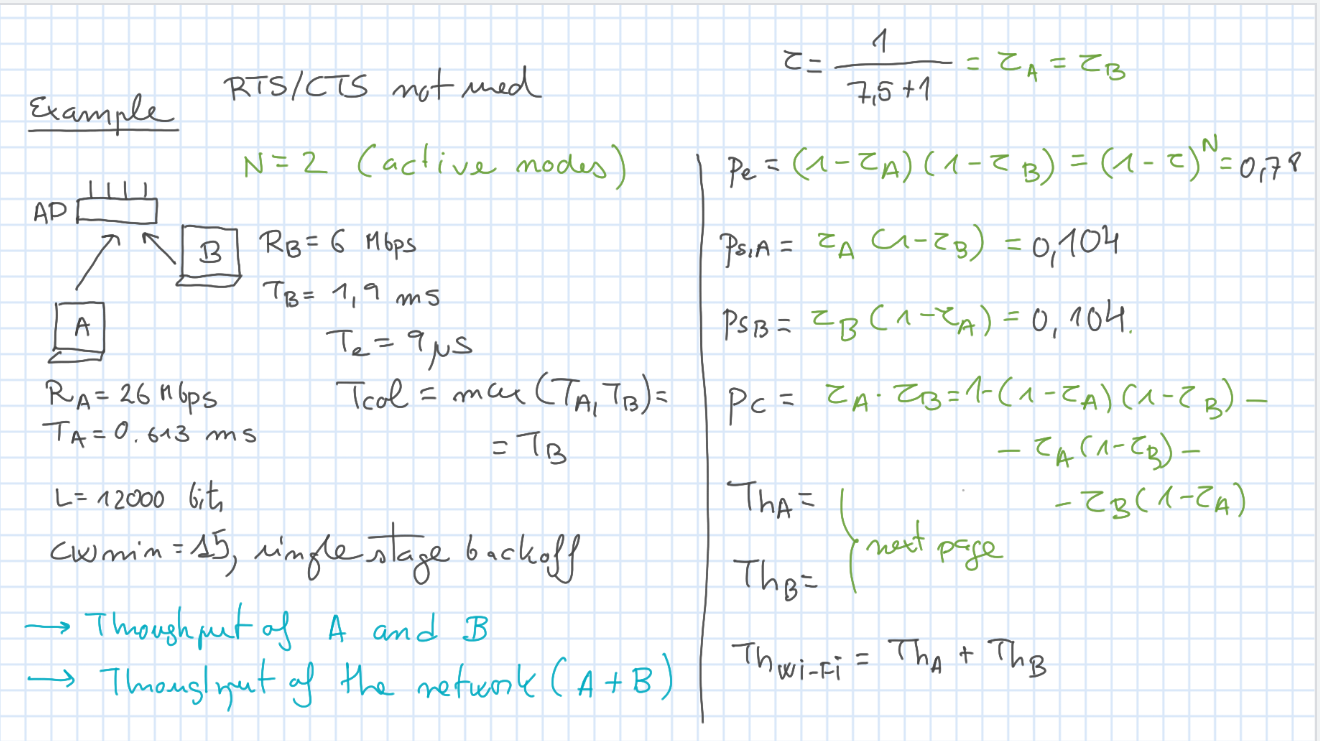 Example
RTS/CTS not used
N=2 (active nodes)
AP
B
R_B = 6 Mbps
T_B = 1,9 ms
A
T_e = 9 μs
R_A = 26 Mbps
T_A = 0.613 ms
T_col = max (T_A, T_B) =
= T_B
L = 12000 bits
CWmin = 15, single stage backoff
→ Throughput of A and B
→ Throughput of the network (A+B)
τ = 1/(7,5+1) = τ_A = τ_B
p_e = (1-τ_A)(1-τ_B) = (1-τ)^N = 0,78
p_s,A = τ_A (1-τ_B) = 0,104
p_sB = τ_B (1-τ_A) = 0,104.
p_c = τ_A · τ_B = 1-(1-τ_A)(1-τ_B) –
– τ_A(1-τ_B) –
– τ_B(1-τ_A)
Th_A =
next page
Th_B =
Th_Wi-Fi = Th_A + Th_B